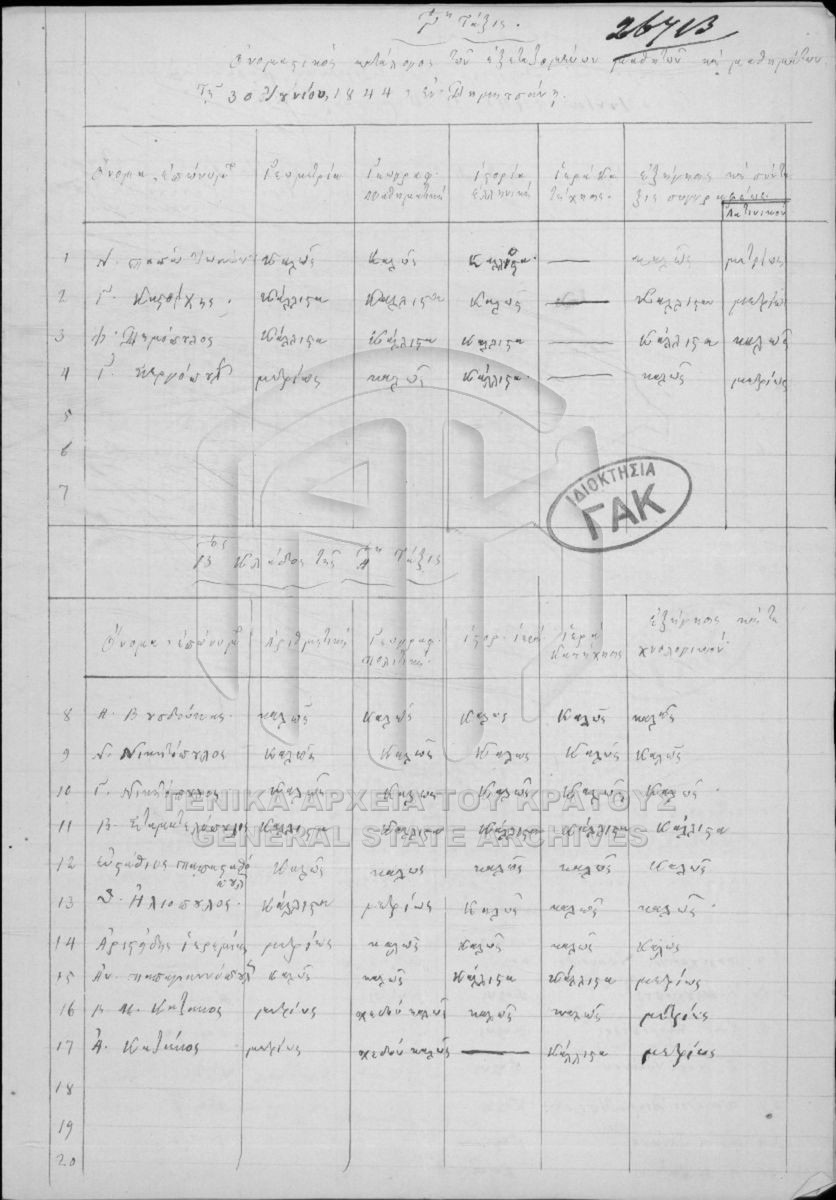 Γη Τάξις.
26713
Ὀνομαστικὸς κατάλογος τῶν ἐξεταζομένων μαθητῶν καὶ μαθημάτων.
Τῇ 30 Ἰουνίου 1844, ἐν Δημητσάνῃ.
Ὄνομα, ἐπώνυμ. Γεωμετρία Γεωγραφ. μαθηματική ἱστορία ἑλληνική ἱερὰ Κατήχησις ἐξήγησις καὶ σύνταξις συγγραφέως Λατινικοῦ
1 Ν. καλῶς καλῶς κάλλιστα — καλῶς μετρίως
2 Γ. κάλλιστα κάλλιστα καλῶς — κάλλιστα μετρίως
3 Δημόπουλος κάλλιστα κάλλιστα κάλλιστα — κάλλιστα καλῶς
4 Γ. μετρίως καλῶς κάλλιστα — καλῶς μετρίως
5
6
7
ΙΔΙΟΚΤΗΣΙΑ
ΓΑΚ
Βος Κλάδος τῆς Τάξις
Ὄνομα, ἐπώνυμ. Ἀριθμητική Γεωγραφ. πολιτική ἱστορ. ἱερά ἱερὰ Κατήχησις Ἐξήγησις καὶ τεχνολογικόν
8 Α. καλῶς καλῶς καλῶς καλῶς καλῶς
9 Ν. Νικητόπουλος καλῶς καλῶς καλῶς καλῶς καλῶς
10 Γ. Νικητόπουλος καλῶς καλῶς καλῶς καλῶς καλῶς
ΓΕΝΙΚΑ ΑΡΧΕΙΑ ΤΟΥ ΚΡΑΤΟΥΣ
11 Β. Σταματελόπουλος κάλλιστα κάλλιστα κάλλιστα κάλλιστα κάλλιστα
GENERAL STATE ARCHIVES
12 Εὐστάθιος καλῶς καλῶς καλῶς καλῶς καλῶς
13 Ἡλιόπουλος κάλλιστα μετρίως καλῶς καλῶς καλῶς
14 Ἀριστείδης Ἱερεμίας μετρίως καλῶς καλῶς καλῶς καλῶς
15 Ἀν. καλῶς καλῶς κάλλιστα κάλλιστα μετρίως
16 Β. Κ. Καζάκος μετρίως σχεδὸν καλῶς καλῶς καλῶς μετρίως
17 Α. Καζάκος μετρίως σχεδὸν καλῶς — κάλλιστα μετρίως
18
19
20